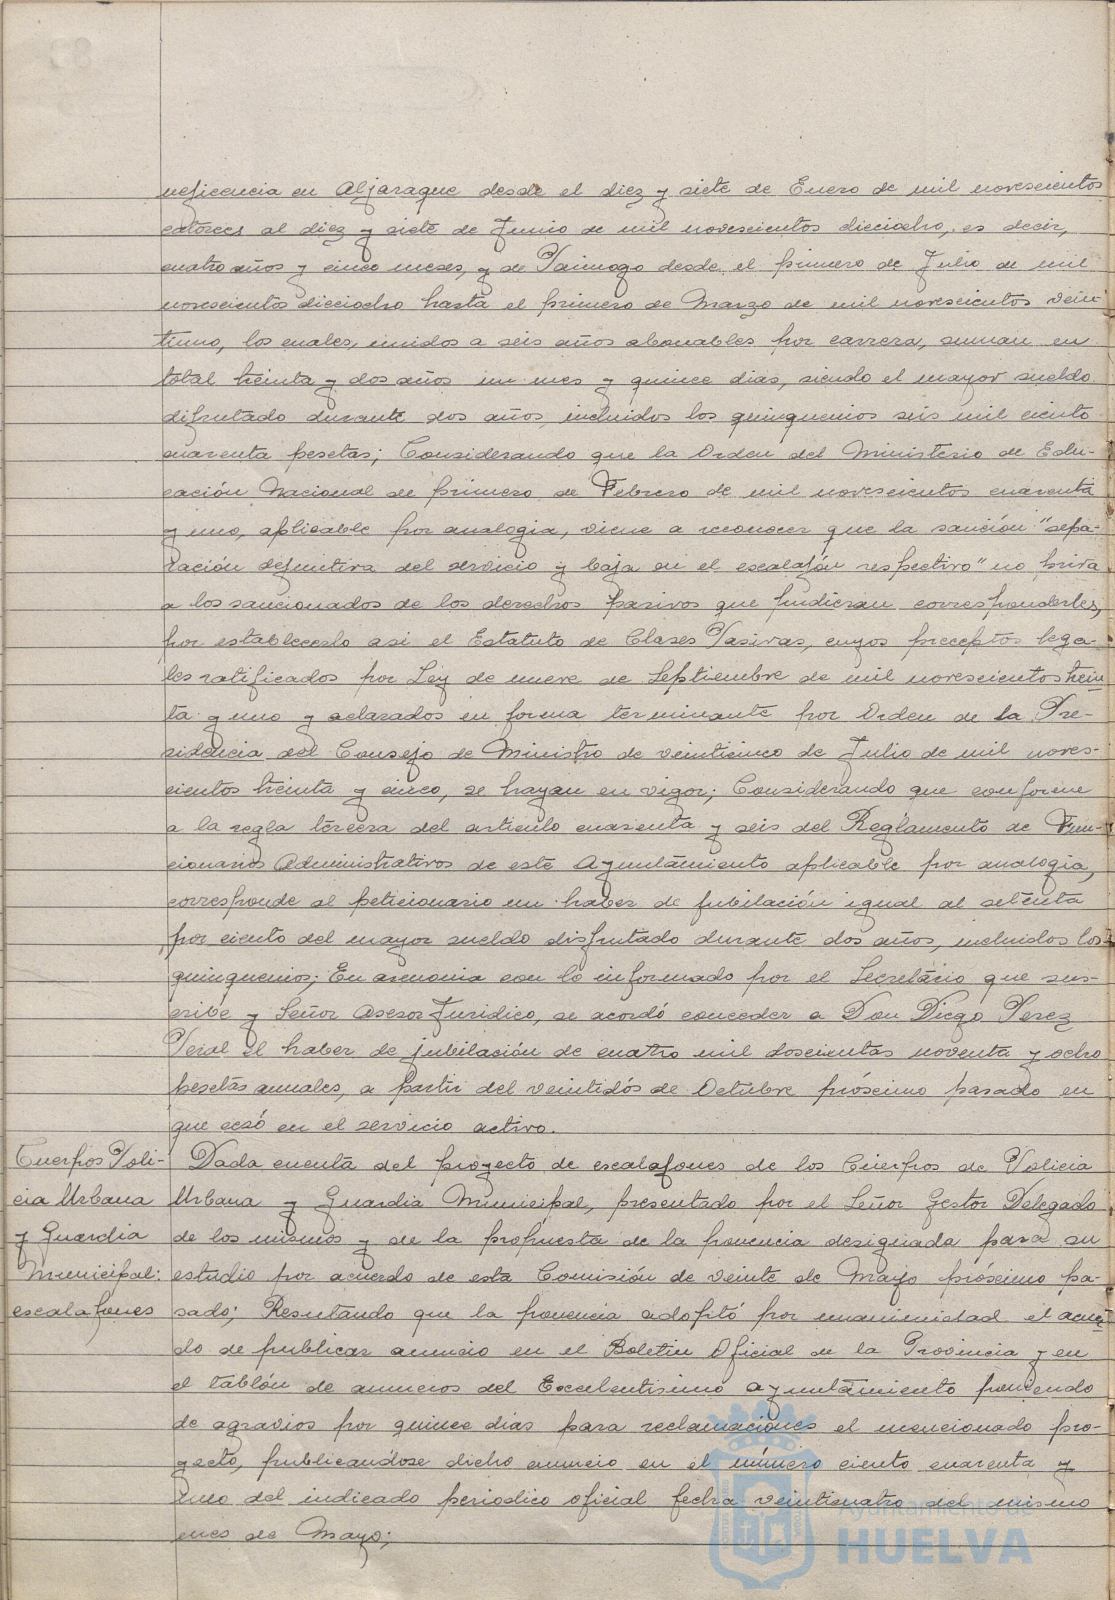 neficencia en Aljaraque desde el diez y siete de Enero de mil novescientos
catorces al diez y siete de Junio de mil novescientos dieciocho, es decir,
cuatro años y cinco meses, y de Paimogo desde el primero de Julio de mil
novescientos dieciocho hasta el primero de Marzo de mil novescientos vein-
tiuno, los cuales, unidos a seis años abonables por carrera, suman en
total treinta y dos años un mes y quince dias, siendo el mayor sueldo
disfrutado durante dos años, incluidos los quinquenios seis mil ciento
cuarenta pesetas; Considerando que la Orden del Ministerio de Edu-
cación Nacional de primero de Febrero de mil novescientos cuarenta
y uno, aplicable por analogia, viene a reconocer que la sanción "sepa-
ración definitiva del servicio y baja en el escalafón respectivo" no priva
a los sancionados de los derechos pasivos que pudieran corresponderles,
por establecerlo asi el Estatuto de Clases Pasivas, cuyos preceptos lega-
les ratificados por Ley de nueve de Septiembre de mil novescientos trein-
ta y uno y aclarados en forma terminante por Orden de la Pre-
sidencia del Consejo de Ministro de veinticinco de Julio de mil noves-
cientos treinta y cinco, se hayan en vigor; Considerando que conforme
a la regla tercera del articulo cuarenta y seis del Reglamento de Fun-
cionarios Administrativos de este Ayuntamiento aplicable por analogia,
corresponde al peticionario un haber de jubilación igual al setenta
por ciento del mayor sueldo disfrutado durante dos años, incluidos los
quinquenios; En armonia con lo informado por el Secretario que sus-
cribe y Señor Asesor Juridico, se acordó conceder a Don Diego Perez
Peral el haber de jubilación de cuatro mil doscientas noventa y ocho
pesetas anuales, a partir del veintidós de Octubre próximo pasado en
que cesó en el servicio activo.
Cuerpos Poli-
cia Urbana
y Guardia
Municipal:
escalafones
Dada cuenta del proyecto de escalafones de los Cuerpos de Policia
Urbana y Guardia Municipal, presentado por el Señor Gestor Delegado
de los mismos y de la propuesta de la ponencia designada para su
estudio por acuerdo de esta Comisión de veinte de Mayo próximo pa-
sado; Resultando que la ponencia adoptó por unanimidad el acuer-
do de publicar anuncio en el Boletin Oficial de la Provincia y en
el tablón de anuncios del Excelentisimo Ayuntamiento poniendo
de agravios por quince dias para reclamaciones el mencionado pro-
yecto, publicandose dicho anuncio en el número ciento cuarenta y
uno del indicado periodico oficial fecha veinticuatro del mismo
mes de Mayo;
Ayuntamiento de
HUELVA